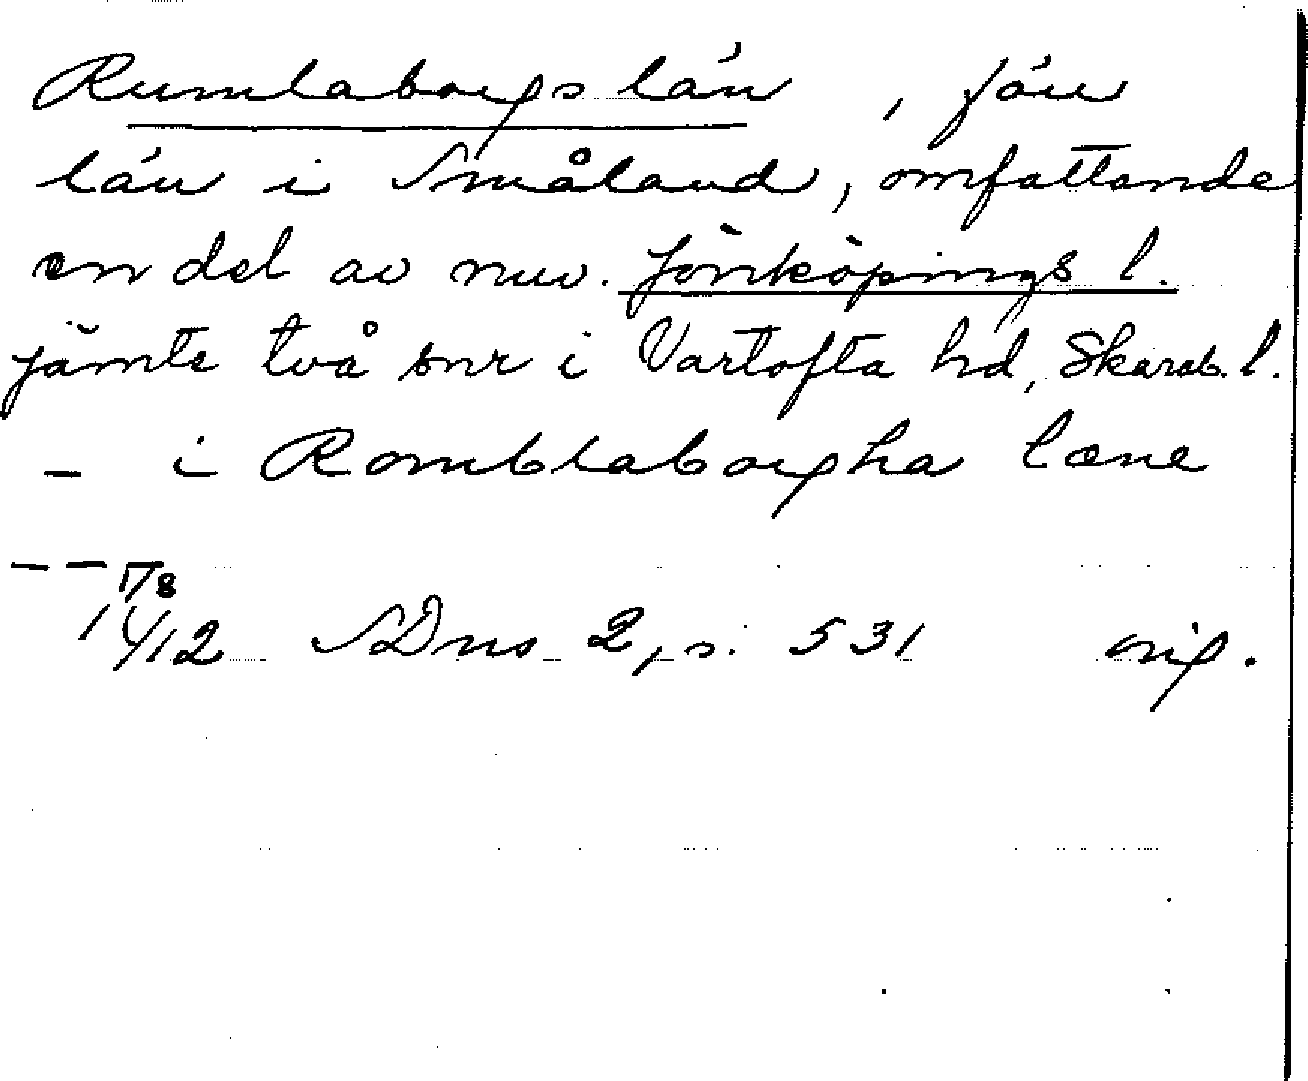 Rumlaborgs län, förv
län i Småland, omfattande
en del av nuv. Jönköpings l.
jämte två snr i Vartofta hd, Skarab. l.
– i Romblaborgha læne
– – 17/8
1412 SDns 2, s. 531 orig.